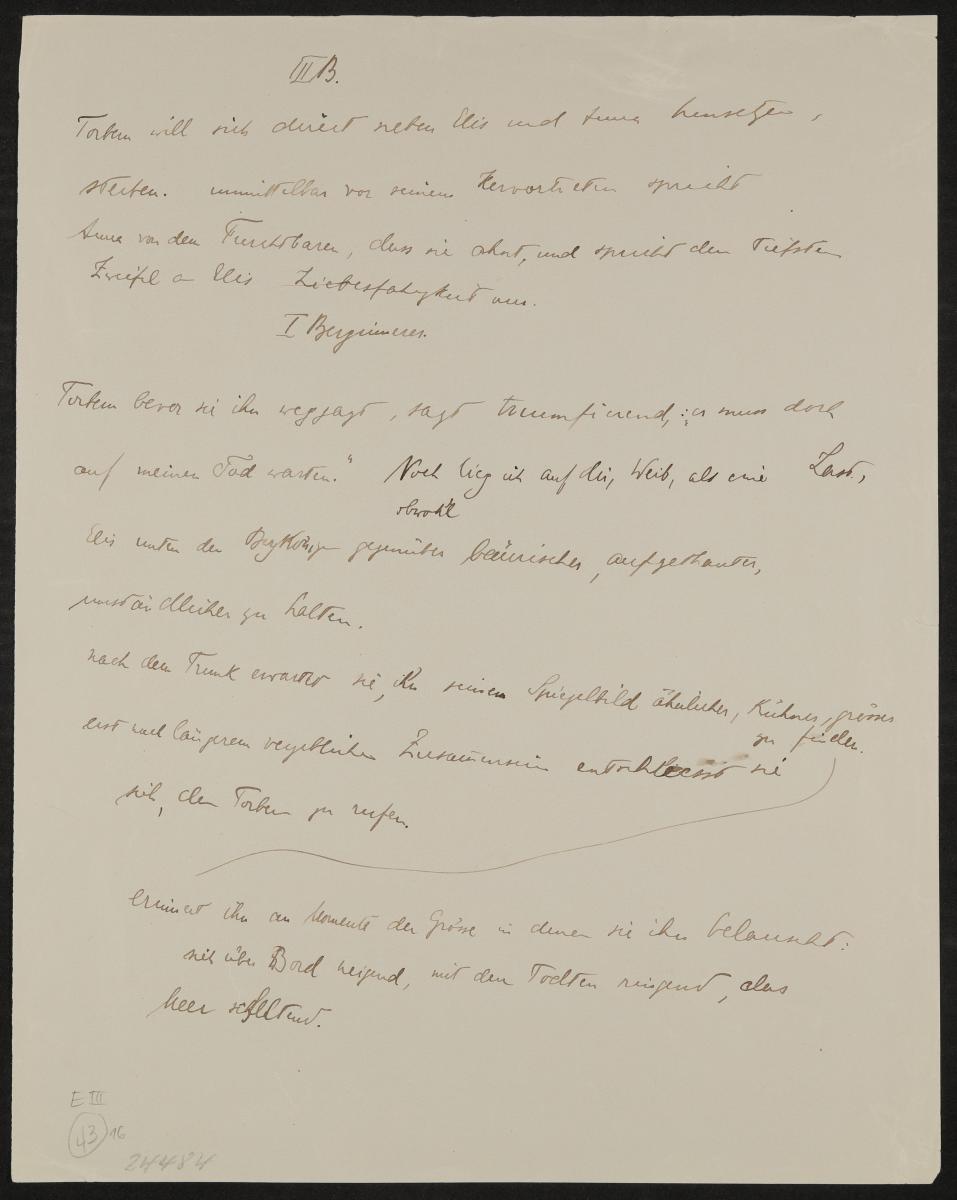 III B.
Torbern will sich direct neben Elis und Anna hinsetzen,
sterben. unmittelbar vor seinem Hervortreten spricht
Anna von dem Furchtbaren, dass sie ahnt, und spricht den tiefsten
Zweifel an Elis Liebesfähigkeit aus.
I Berginneres.
Torbern bevor sie ihn wegjagt, sagt triumfierend, : „er muss doch
auf meinen Tod warten." Noch lieg ich auf dir, Weib, als eine Last.,
obwohl
Elis unten der Bergkönigin gegenüber bäurischer, aufgethauter,
umständlicher zu halten.
nach dem Trunk erwartet sie, ihn seinem Spiegelbild ähnlicher, kühner, grösser
zu finden.
erst nach längerem vergeblichen Zusammensein entschliesst sie
sich, den Torbern zu rufen.
erinnert ihn an Momente der Grösse in denen sie ihn belauscht:
sich über Bord neigend, mit den Todten ringend, das
Meer scheltend.
E III
43 16
24484